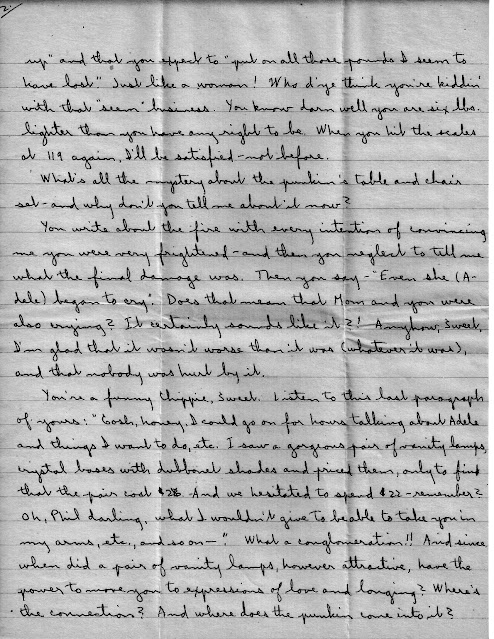 2.
up" and that you expect to "put on all those pounds I seem to
have lost". Just like a woman! Who d'ye think you're kiddin'
with that "seem" business. You know darn well you are six lbs.
lighter than you have any right to be. When you hit the scales
at 119 again, I'll be satisfied - not before.
What's all the mystery about the punkin's table and chair
set - and why don't you tell me about it now?
You write about the fire with every intention of convincing
me you were very frightened - and then you neglect to tell me
what the final damage was. Then you say - "Even she (A-
dele) began to cry." Does that mean that Mom and you were
also crying? It certainly sounds like it?! Anyhow, Sweet,
I'm glad that it wasn't worse than it was (whatever it was),
and that nobody was hurt by it.
You're a funny Chippie, Sweet. Listen to this last paragraph
of yours: "Gosh, honey, I could go on for hours talking about Adele
and things I want to do, etc. I saw a gorgeous pair of vanity lamps,
crystal bases with dubbonet shades and priced them, only to find
that the pair cost $28. And we hesitated to spend $22 - remember?
Oh, Phil darling, what I wouldn't give to be able to take you in
my arms, etc., and so on -." What a conglomeration!! And since
when did a pair of vanity lamps, however attractive, have the
power to move you to expressions of love and longing? Where's
the connection? And where does the punkin come into it?